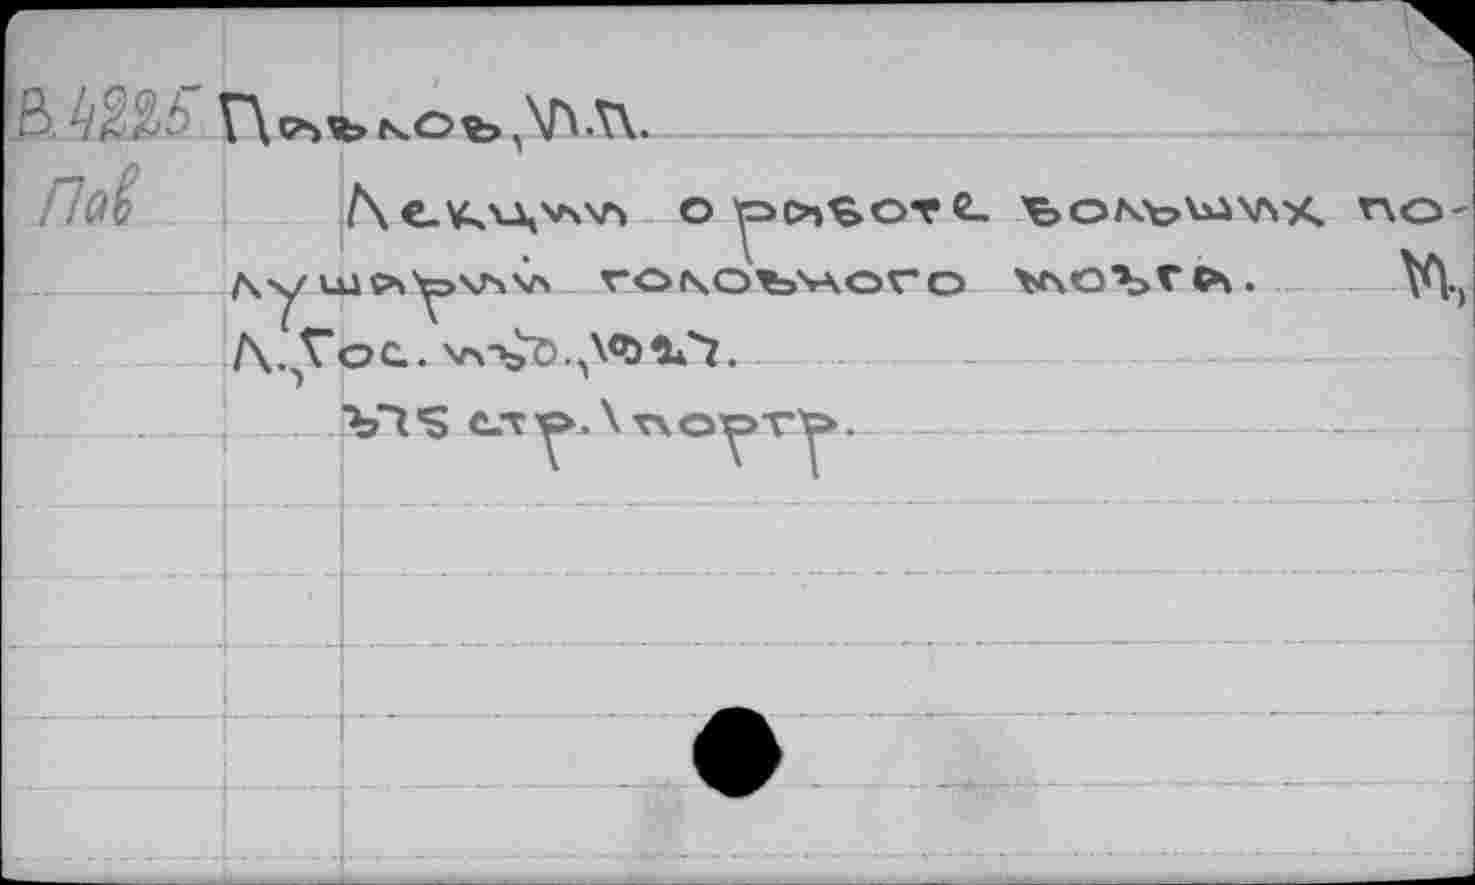 В.4225 Павлов, И.П.
Пав Лекции о работе больших по-
лушарий головного мозга. М.,
Л., Гос. изд., 1927.
375 стр. 1 портр.